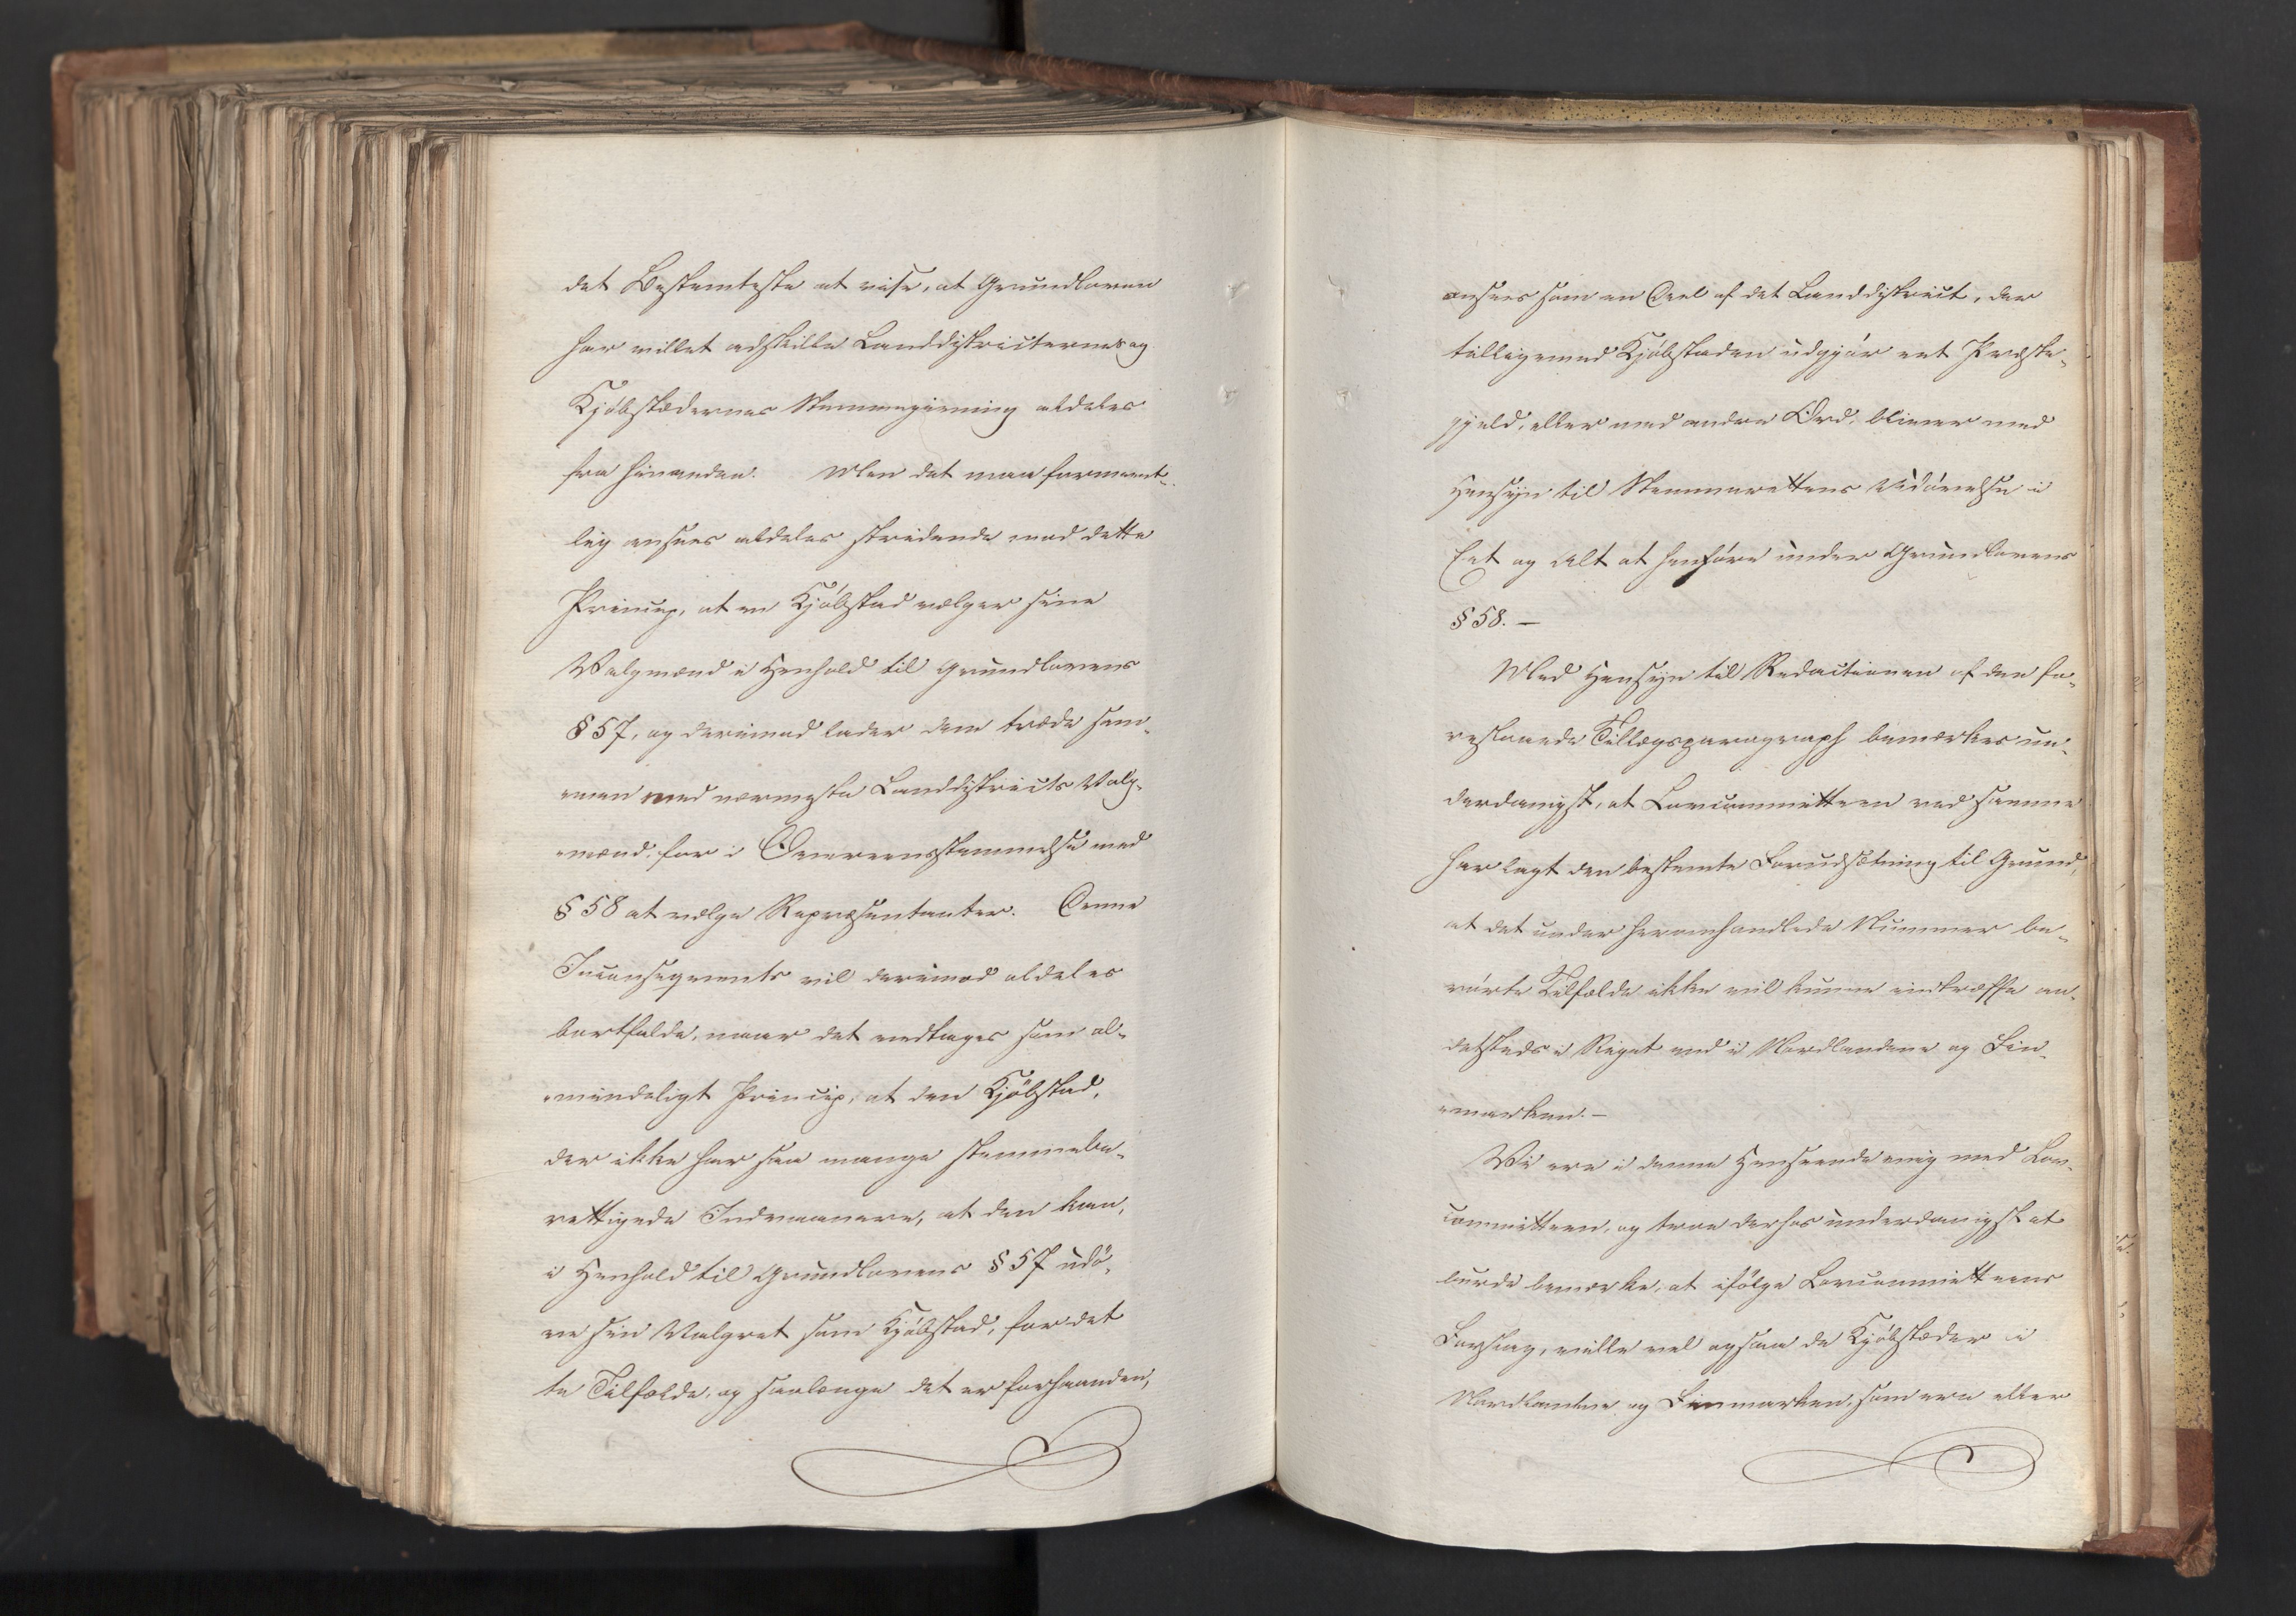 det Bestemteste at vise, at Grundloven
har villet adskille Landdistricternes og
Kjøbstædernes Stemmegivning aldeles
fra hinanden. Men det maa forment-
lig ansees aldeles stridende mod dette
Princip, at en Kjøbstad vælger sine
Valgmænd i Henhold til Grundlovens
§ 57, og derimod lader dem træde sam-
men med nærmeste Landdistricts Valg-
mænd, for i Overeensstemmelse med
§ 58 at vælge Repræsentanter. Denne
Inconseqvents vil derimod aldeles
bortfalde, naar det vedtages som al-
mindeligt Princip, at den Kjøbstad,
der ikke har saa mange stemmebe-
rettigede Indvaanere, at den kan,
i Henhold til Grundlovens § 57 udø-
ve sin Valgret som Kjøbstad, for det-
te Tilfælde, og saalænge det er forhaanden,
ansees som en Deel af det Landdistrict, der
tilligemed Kjøbstaden udgjør eet Præste-
gjeld, eller med andre Ord, bliver med
Hensyn til Stemmerettens Udøvelse i
Eet og Alt at henføre under Grundlovens
§ 58. —
Med Hensyn til Redactionen af den fo-
reslaaede Tillægsparagraph bemærkes un-
derdanigst, at Lovcommitteen ved samme
har lagt den bestemte Forudsætning til Grund,
at det under heromhandlede Nummer be-
rørte Tilfælde ikke vil kunne indtræffe an-
detsteds i Riget end i Nordlandene og Fin-
marken. —
Vi ere i denne Henseende enig med Lov-
committeen, og troe derhos underdanigst at
burde bemærke, at ifølge Lovcommitteens
Forslag, ville vel ogsaa de Kjøbstæder i
Nordlandene og Finmarken, som ere eller